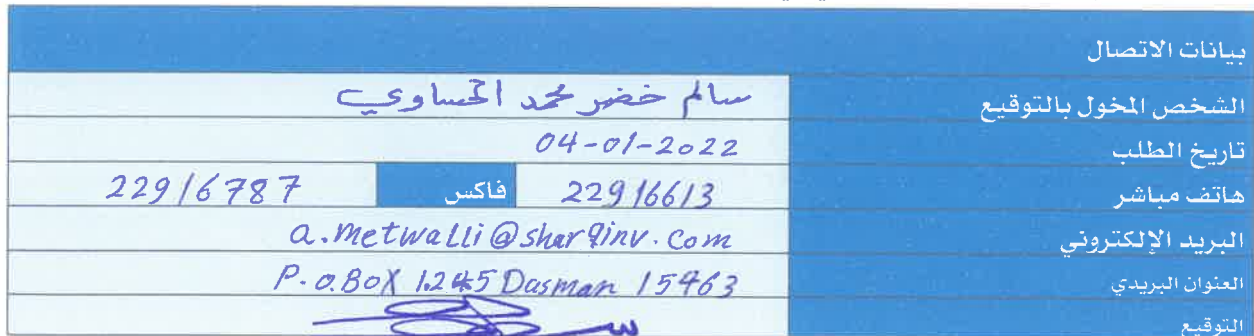 بيانات الاتصال
الشخص المخول بالتوقيع سالم خضر محمد الحساوي
تاريخ الطلب 04-01-2022
هاتف مباشر 22916613 فاكس 22916787
البريد الإلكتروني a.metwalli@sharqinv.com
العنوان البريدي P.o.Box 1245 Dasman 15463
التوقيع